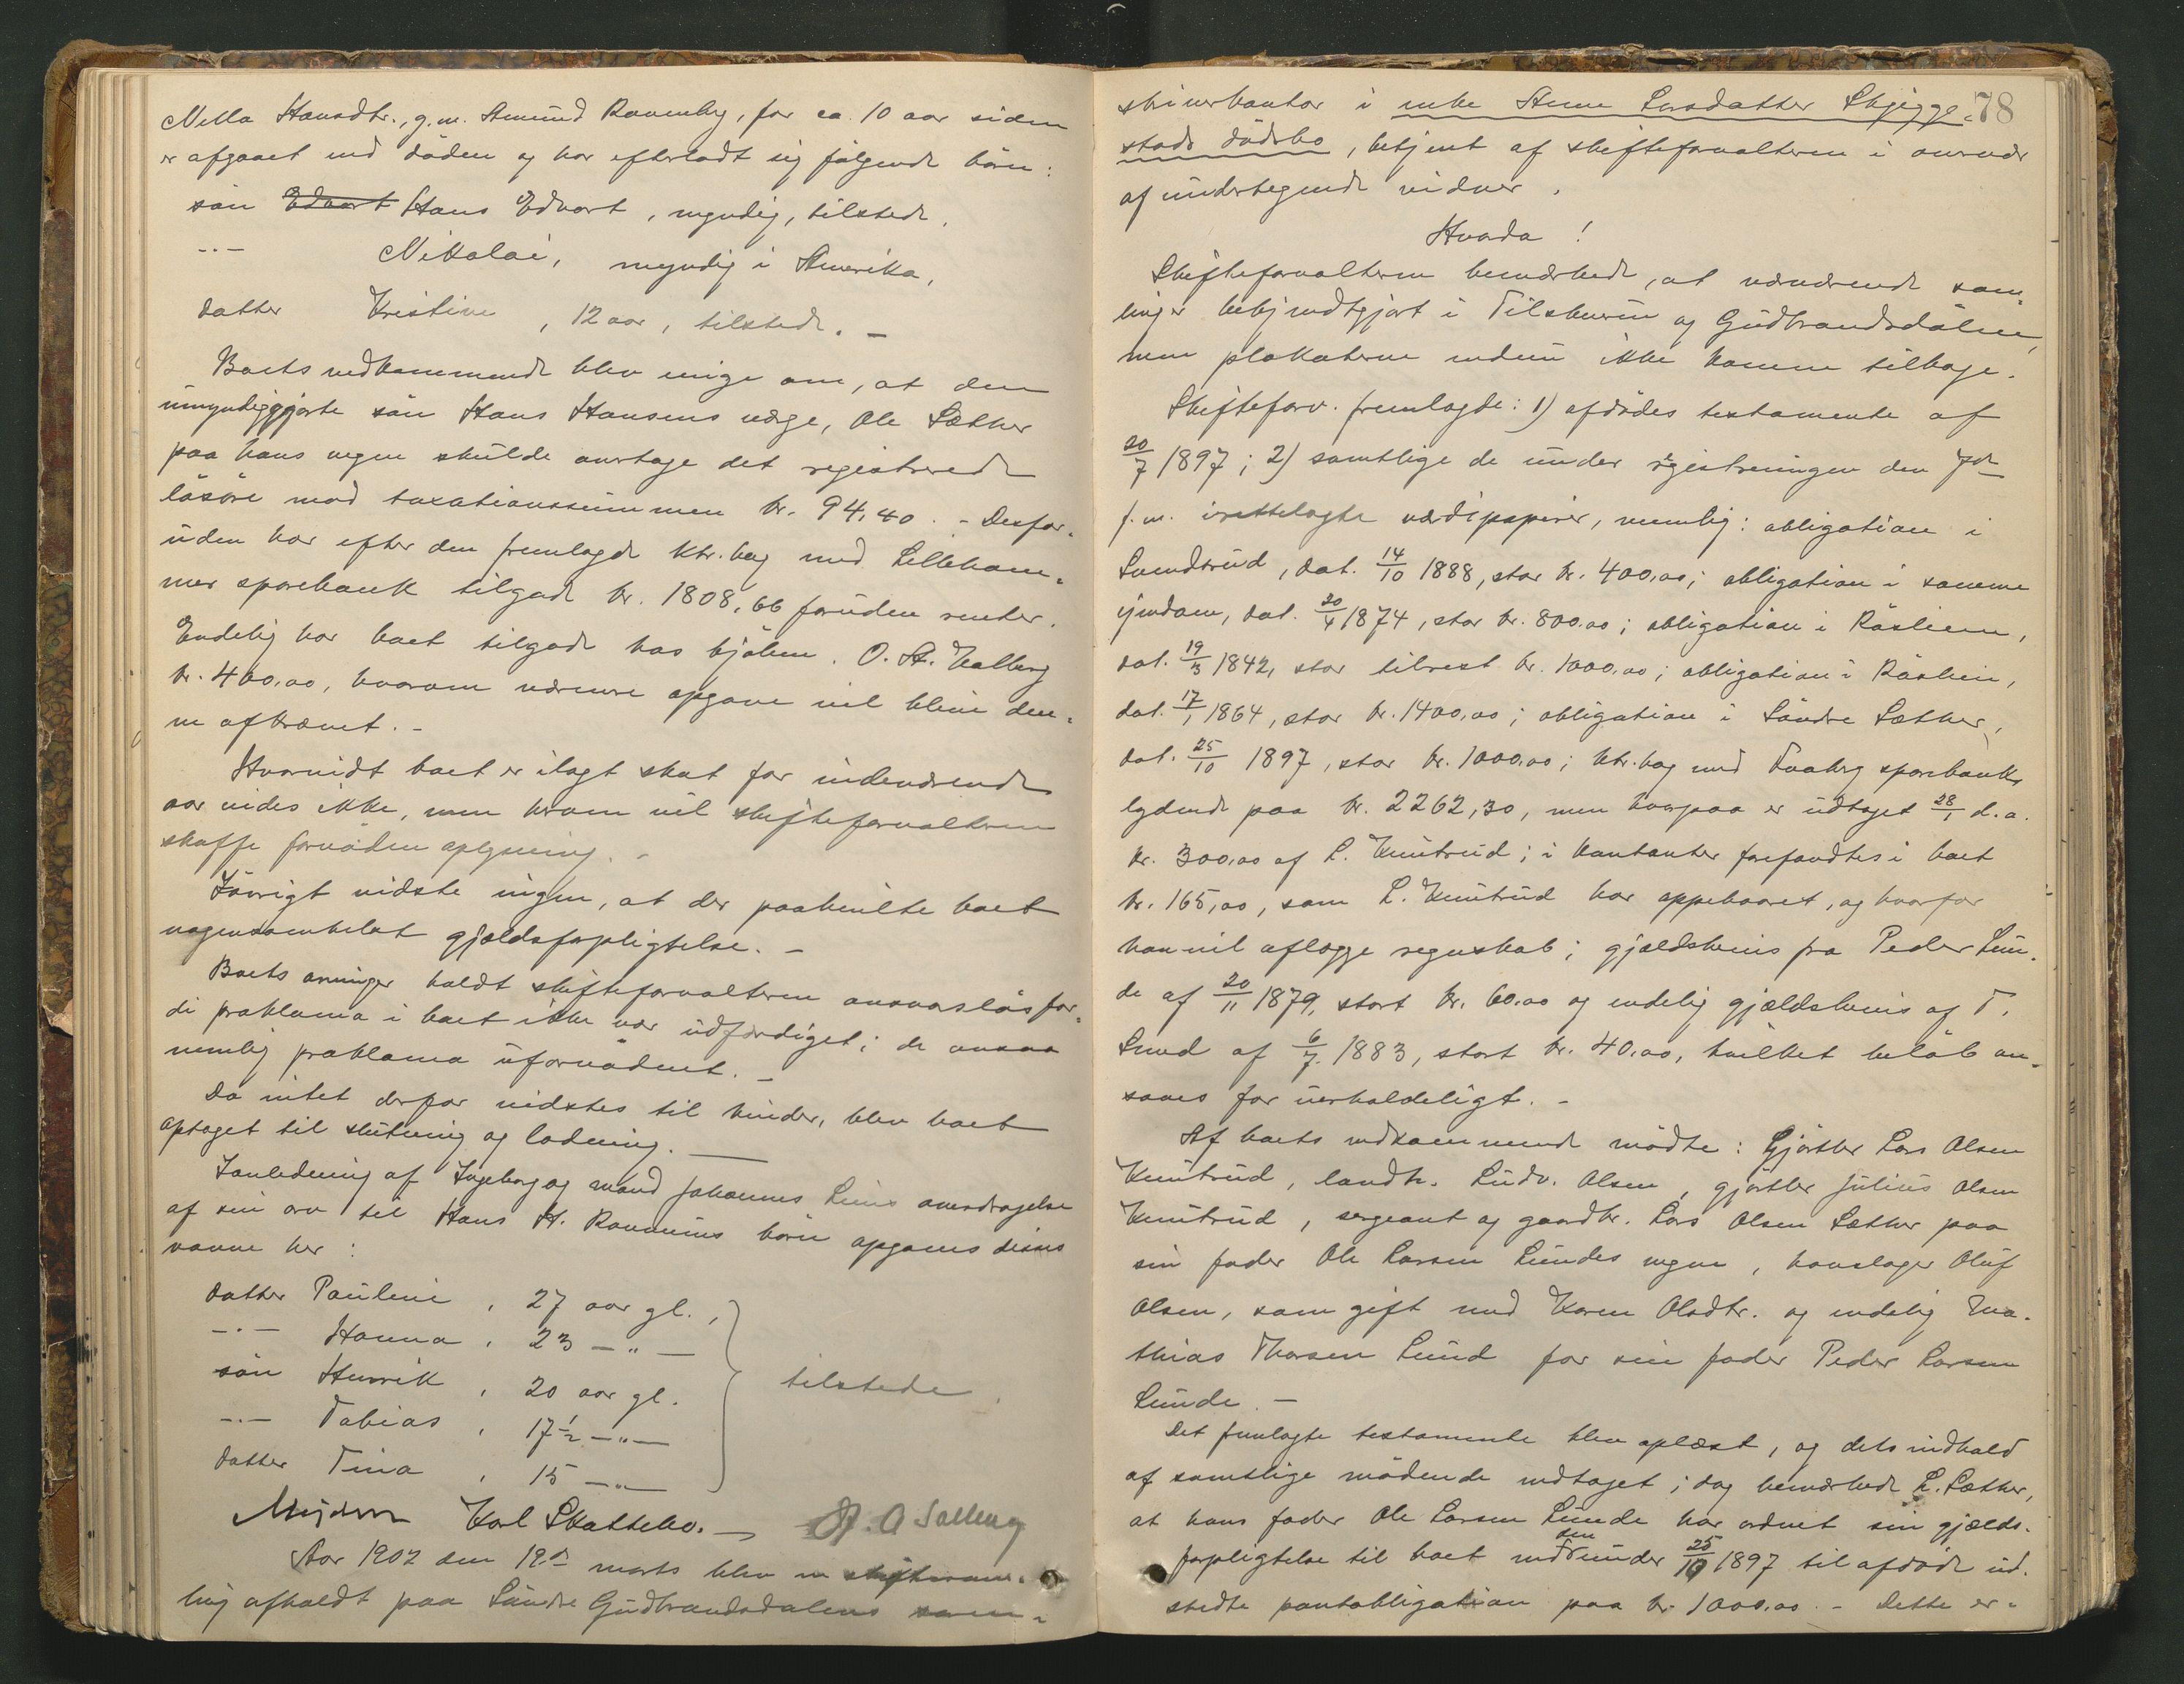 Nella Hansdtr., g.m. Amund Ravenby, for ca. 10 aar siden
er afgaaet ved döden og har efterladt sig fölgende börn:
sön Edvart Hans Edvart, myndig, tilstede.
-"- Nikolai, myndig i Amerika,
datter Kristine, 12 aar, tilstede. -
Boets vedkommende blev enige om, at den
umyndiggjorte sön Hans Hansens værge, Ole Sæther
paa hans vegne skulde overtage det registrerede
lösöre mod taxationssummen kr. 94,40. - Desfor-
uden har efter den fremlagde ktr.bog med Lilleham-
mer sparebank tilgode kr. 1808,66 foruden renter.
Endelig har boet tilgode hos kjöbm. O. A. Kalberg
kr. 400,00, hvorom nærmere opgave vil blive den-
ne afkrævet. -
Hvorvidt boet er ilagt skat for indeværende
aar vides ikke, men herom vil skifteforvalteren
skaffe fornöden oplysning. -
Iövrigt vidste ingen, at der paahvilte boet
nogensomhelst gjældsforpligtelse. -
Boets arvinger holdt skifteforvalteren ansvarslös for-
di proklama i boet ikke var udfærdiget; de ansaa
nemlig proklama ufornödent. -
Da intet derfor vidstes til hinder, blev boet
optaget til slutning og lodning. —
I anledning af Ingeborg og mand Johannes Luns overdragelse
af sin arv til Hans H. Ravnums börn opgaves disses
navne her:
datter Pauline, 27 aar gl.,
-"- Hanna, 23 -"-
sön Henrik, 20 aar gl. tilstede.
-"- Tobias, 17½ -"-
datter Tina, 15 -"-
Mejdern Karl Skattebo. - H. O Solberg
Aar 1902 den 19de marts blev en skiftesam-
ling afholdt paa Söndre Gudbrandsdalens soren-
78
skriverkontor i enke Anne Larsdatter Skjegge-
stads dödsbo, betjent af skifteforvalteren i overvær
af undertegnede vidner.
Hvorda!
Skifteforvalteren bemærkede, at nærværende sam-
ling er bekjendtgjort i Tilskueren og Gudbrandsdölen,
men plakaterne endnu ikke komne tilbage.
Skifteforv. fremlagde: 1) afdödes testamente af
20/7 1897; 2) samtlige de under registreringen den 7de
f.m. irettelagte værdipapirer, nemlig: obligation i
Svendsrud, dat. 14/10 1888, stor kr. 400,00; obligation i samme
ejendom, dat. 20/4 1874, stor kr. 800.00; obligation i Råslien,
dat. 19/3 1842, stor tilrest kr. 1000,00; obligation i Råslien,
dat. 17/1 1864, stor kr. 1400,00; obligation i Söndre Sæther,
dat. 25/10 1897, stor kr. 1000.00; ktr.bog med Faaberg sparebank,
lydende paa kr. 2262,30, men hvorpaa er udtaget 28/1 d.a.
kr. 300,00 af L. Knutrud; i kontanter forefandtes i boet
kr. 165,00, som L. Knutrud har oppebaaret, og hvorfor
han vil aflægge regnskab; gjældsbevis fra Peder Lun-
de af 20/11 1879, stort kr. 60.00 og endelig gjældsbevis af T.
Lund af 6/7 1883, stort kr. 40.00, hvilket belöb an-
saaes for uerholdeligt. -
Af boets vedkommende mödte: Gjörtler Lars Olsen
Knutrud, landh. Ludv. Olsen, gjörtler Julius Olsen
Knutrud, sergeant og gaardbr. Lars Olsen Sæther paa
sin fader Ole Larsen Lundes vegne, hovslager Oluf
Olsen, som gift med Karen Olsdtr. og endelig Ma-
thias Thorsen Lund for sin fader Peder Larsen
Lunde. -
Det fremlagte testamente blev oplæst, og dets indhold
af samtlige mödende vedtaget; dog bemærkede L. Sæther,
at hans fader Ole Larsen Lunde har ordnet sin gjælds-
forpligtelse til boet med den under 25/10 1897 til afdöde ud-
stedte pantobligation paa kr. 1000.00. - Dette er-